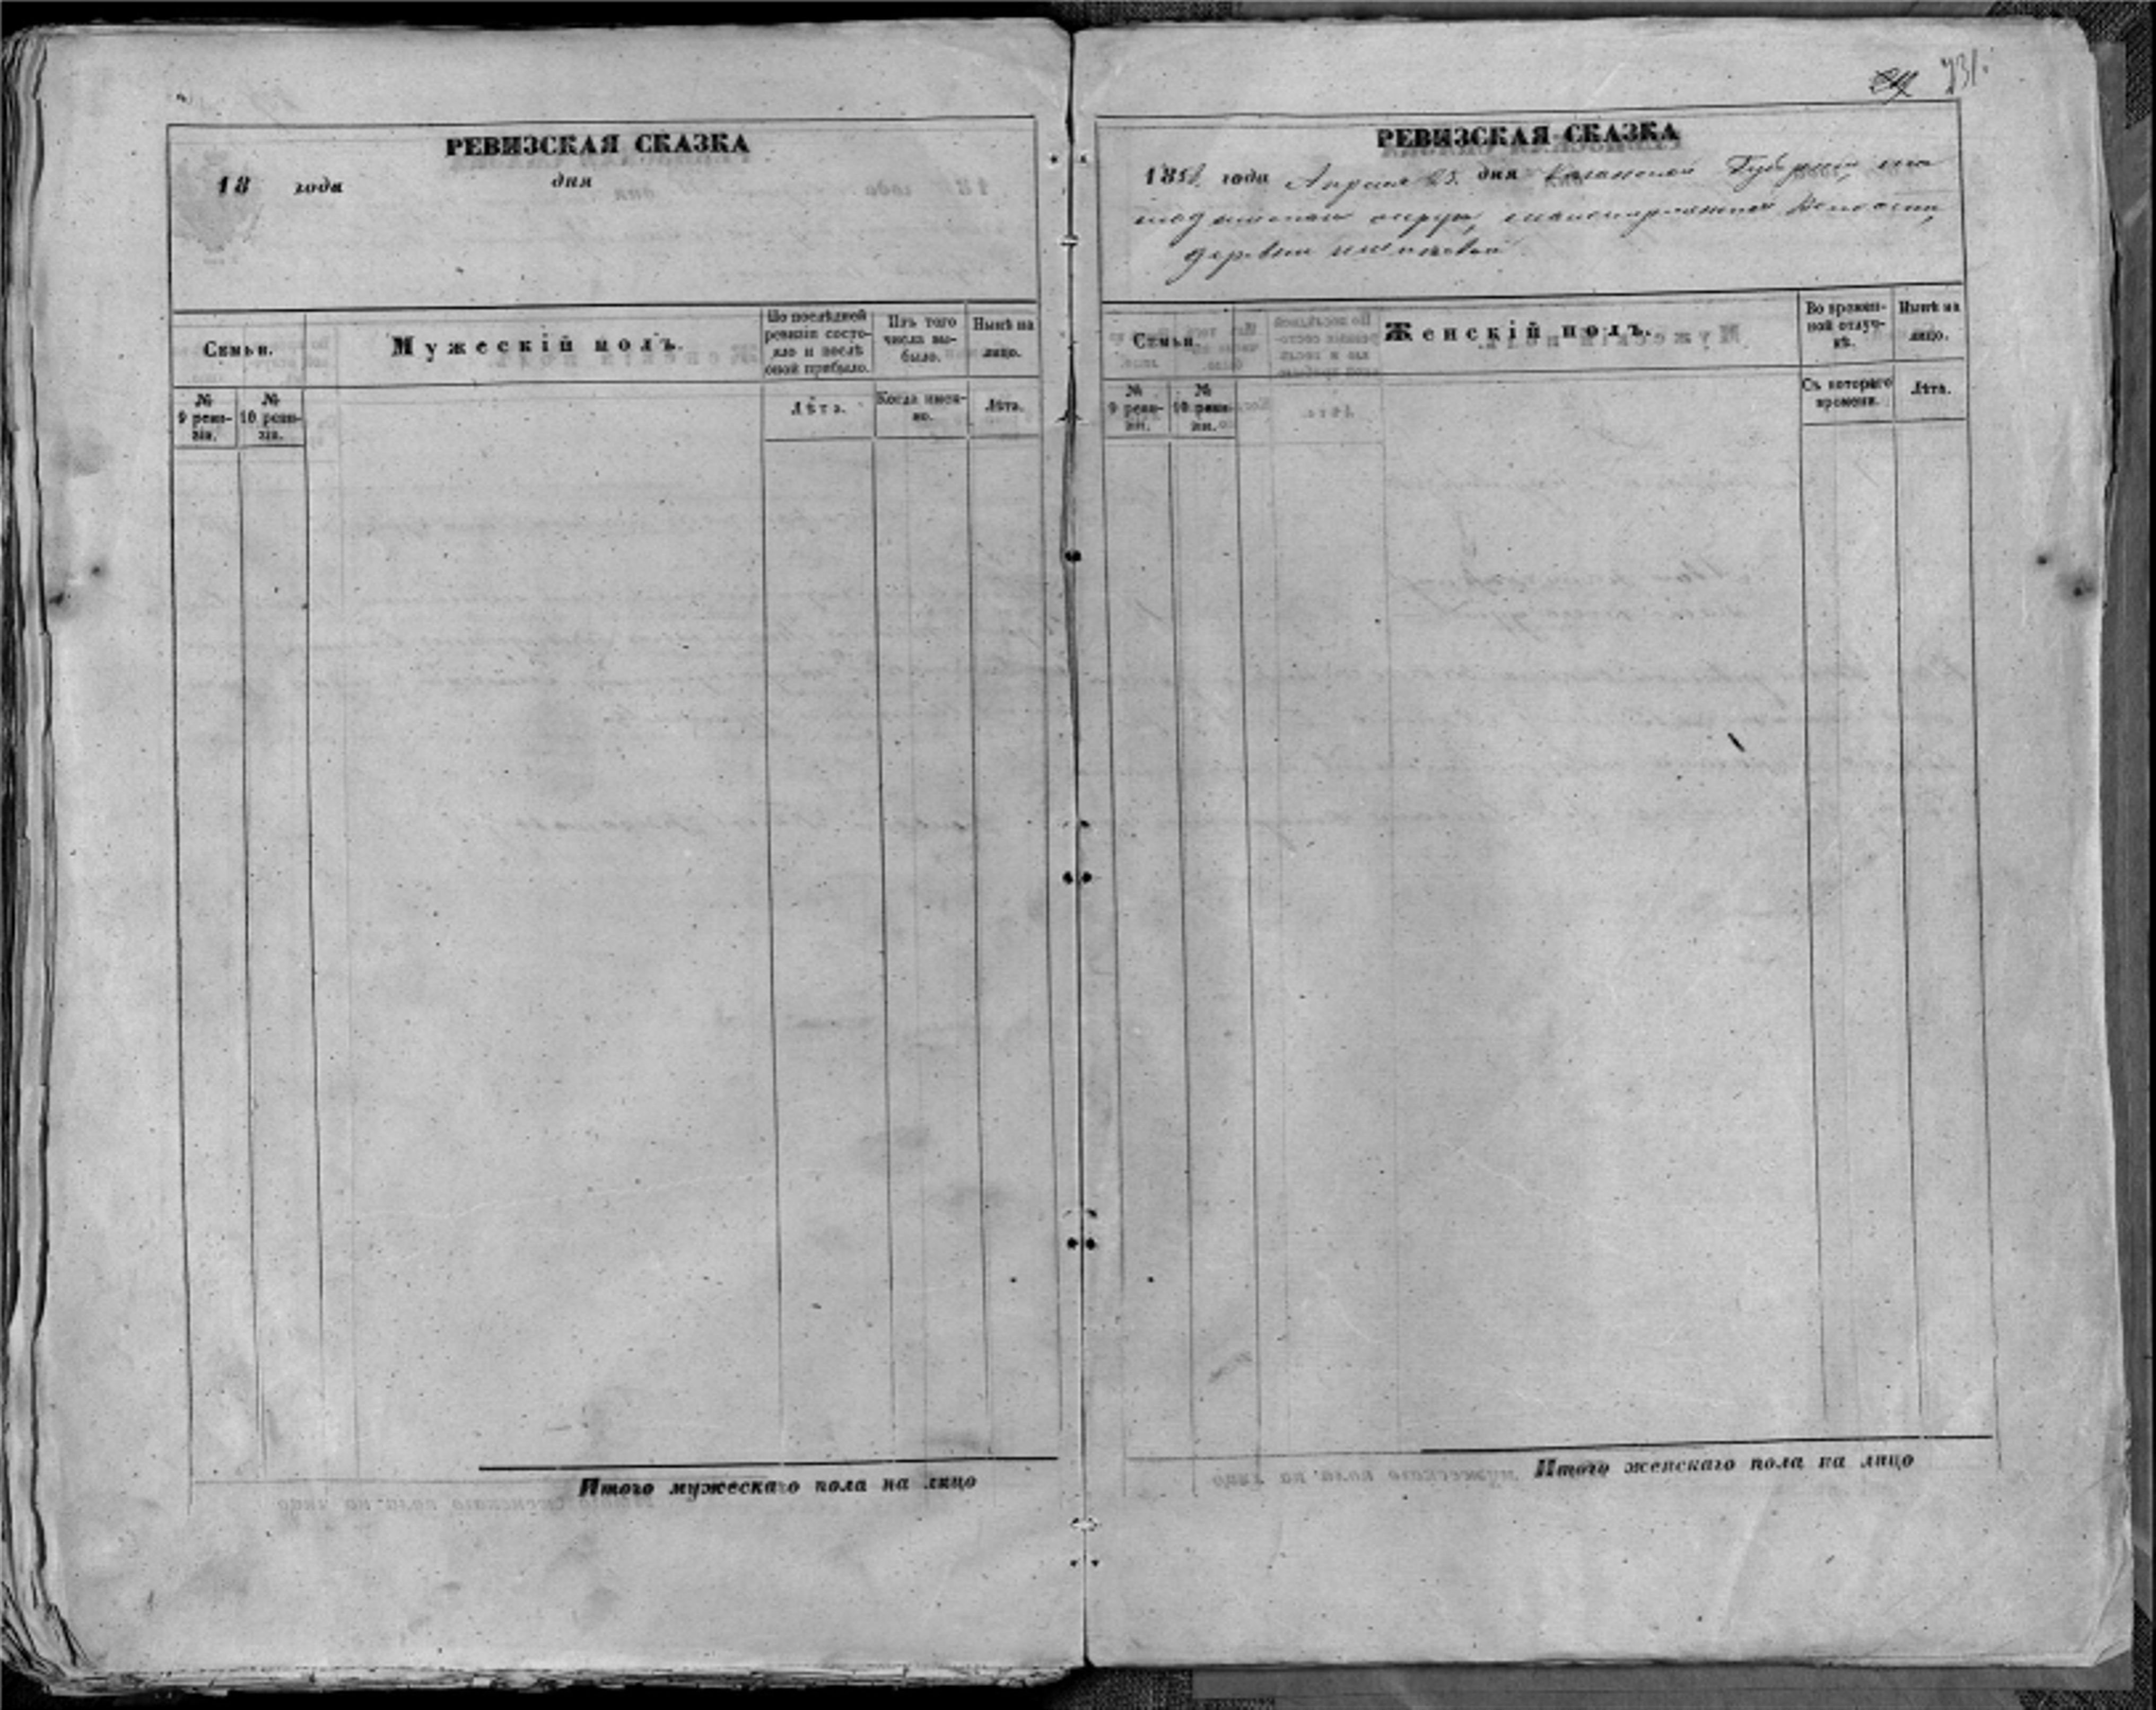 РЕВИЗСКАЯ СКАЗКА
18 года дня
Семьи.
Мужескій полъ.
По послѣдней ревизіи состояло и послѣ оной прибыло.
Изъ того числа выбыло.
Нынѣ на лицо.
№ 9 ревизіи.
№ 10 ревизіи.
Лѣта.
Когда именно.
Лѣта.
Итого мужескаго пола на лицо
231.
РЕВИЗСКАЯ СКАЗКА
1858 года Апреля 25 дня Казанской Губерніи,
округа, волости,
деревни
Семьи.
Женскій полъ.
Во временной отлучкѣ.
Нынѣ на лицо.
№ 9 ревизіи.
№ 10 ревизіи.
Съ котораго времени.
Лѣта.
Итого женскаго пола на лицо